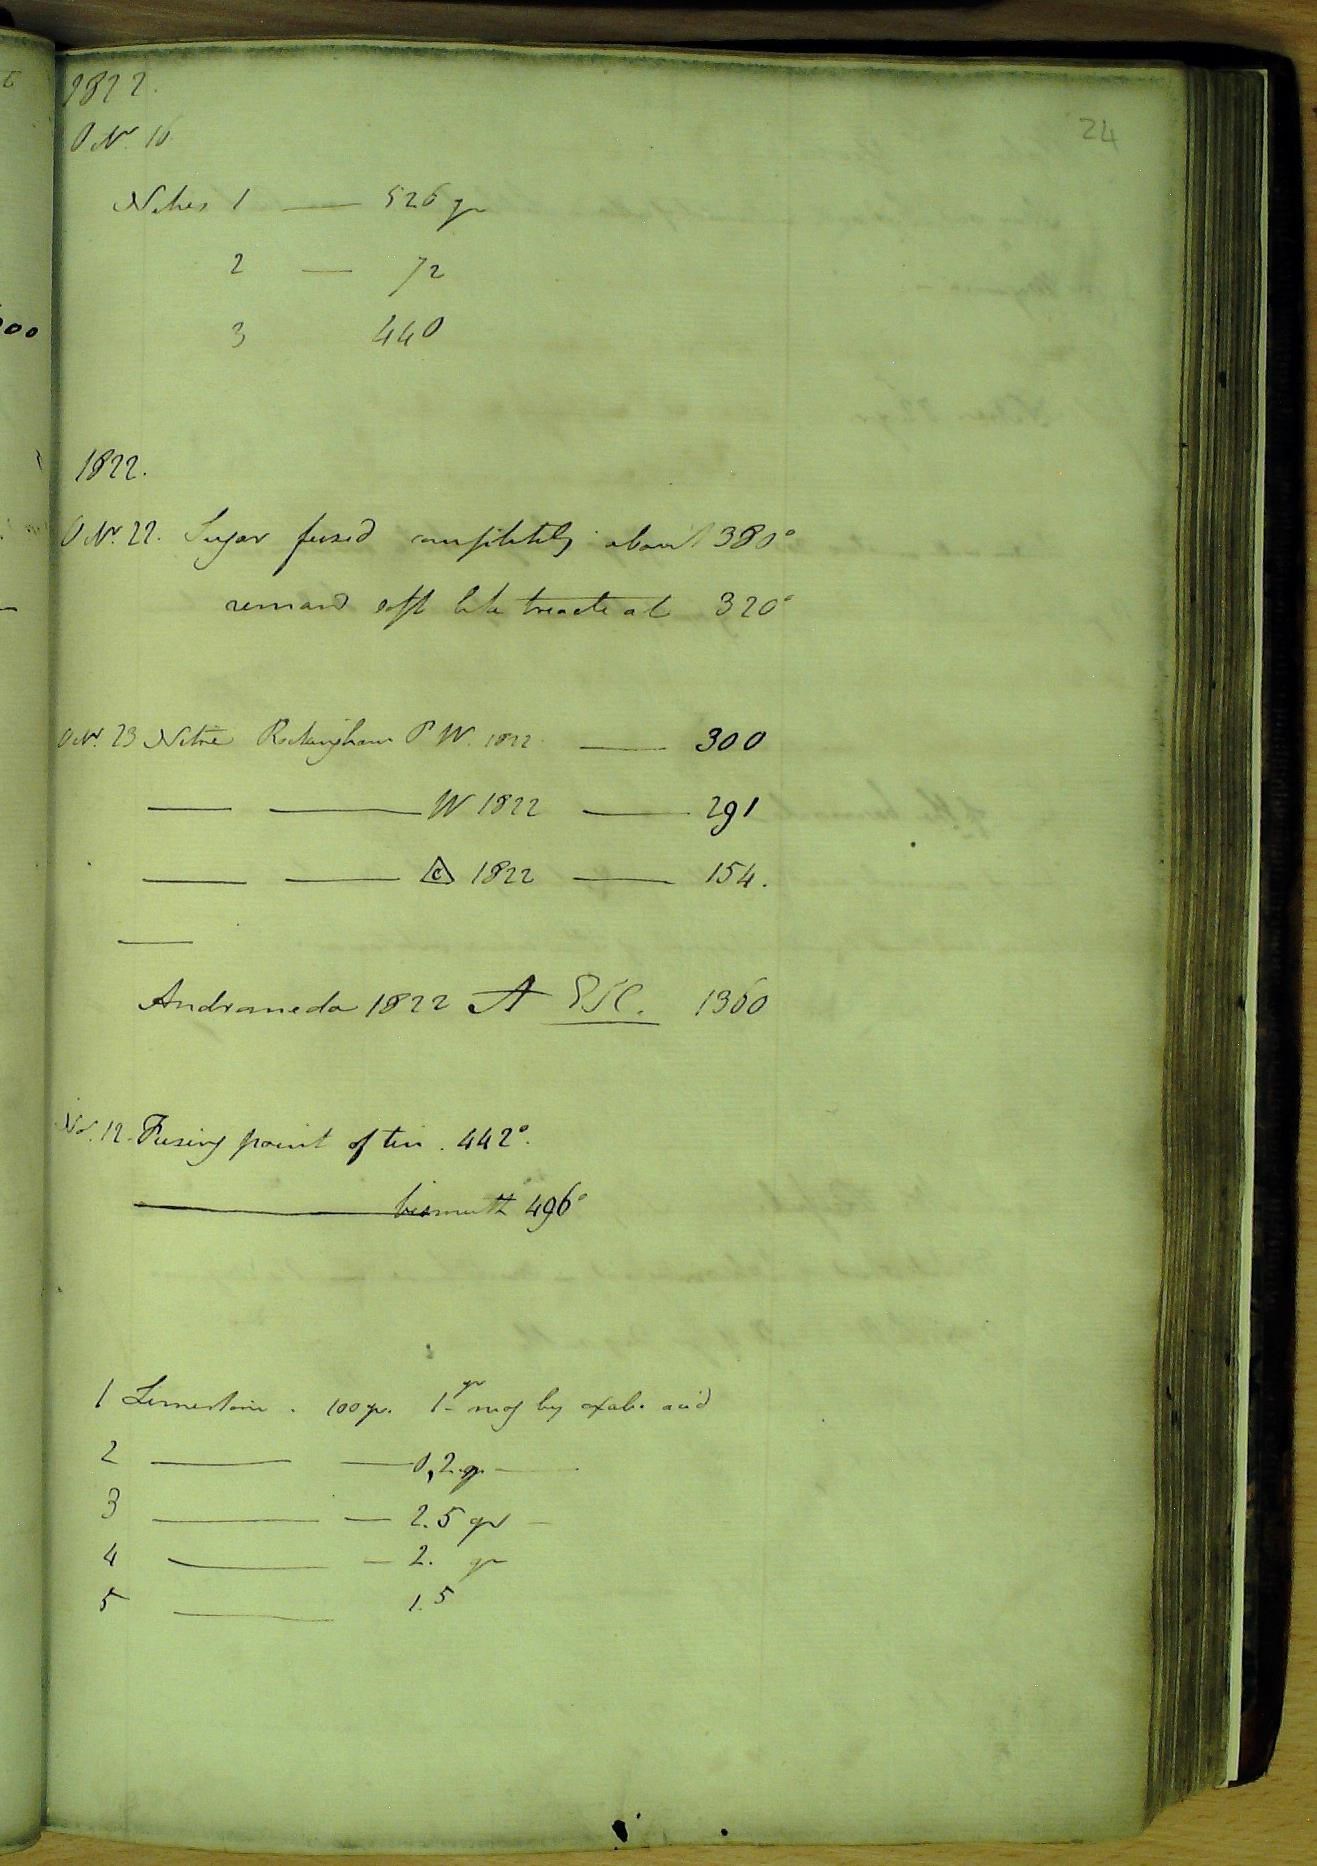 24
1822.
Nitres 1 — 526 gr
2 — 72
3 440
1822.
22. Sugar fused completely about 380°
remand soft like treacle at 320°
23 Nitre Rockingham P W. 1822 — 300
— — W 1822 — 291
— — C 1822 — 154.
—
Andromeda 1822 A 1360
No. 12. Fusing point of tin. 442°.
— bismuth 496°
1 Limestone. 100 gr. 1 gr mag by oxalic acid
2 — — 0,2 gr —
3 — — 2.5 gr —
4 — — 2. gr
5 — 1.5